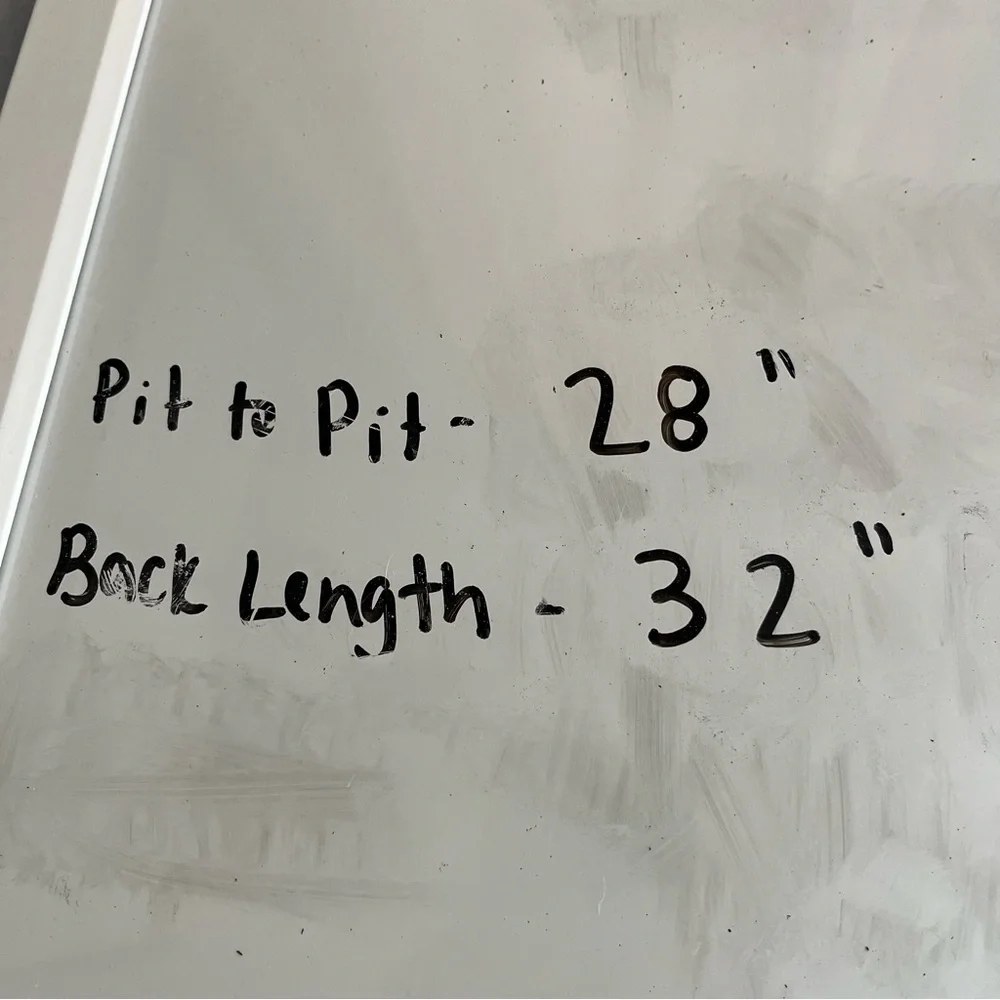 Pit to Pit - 28"
Back Length - 32"